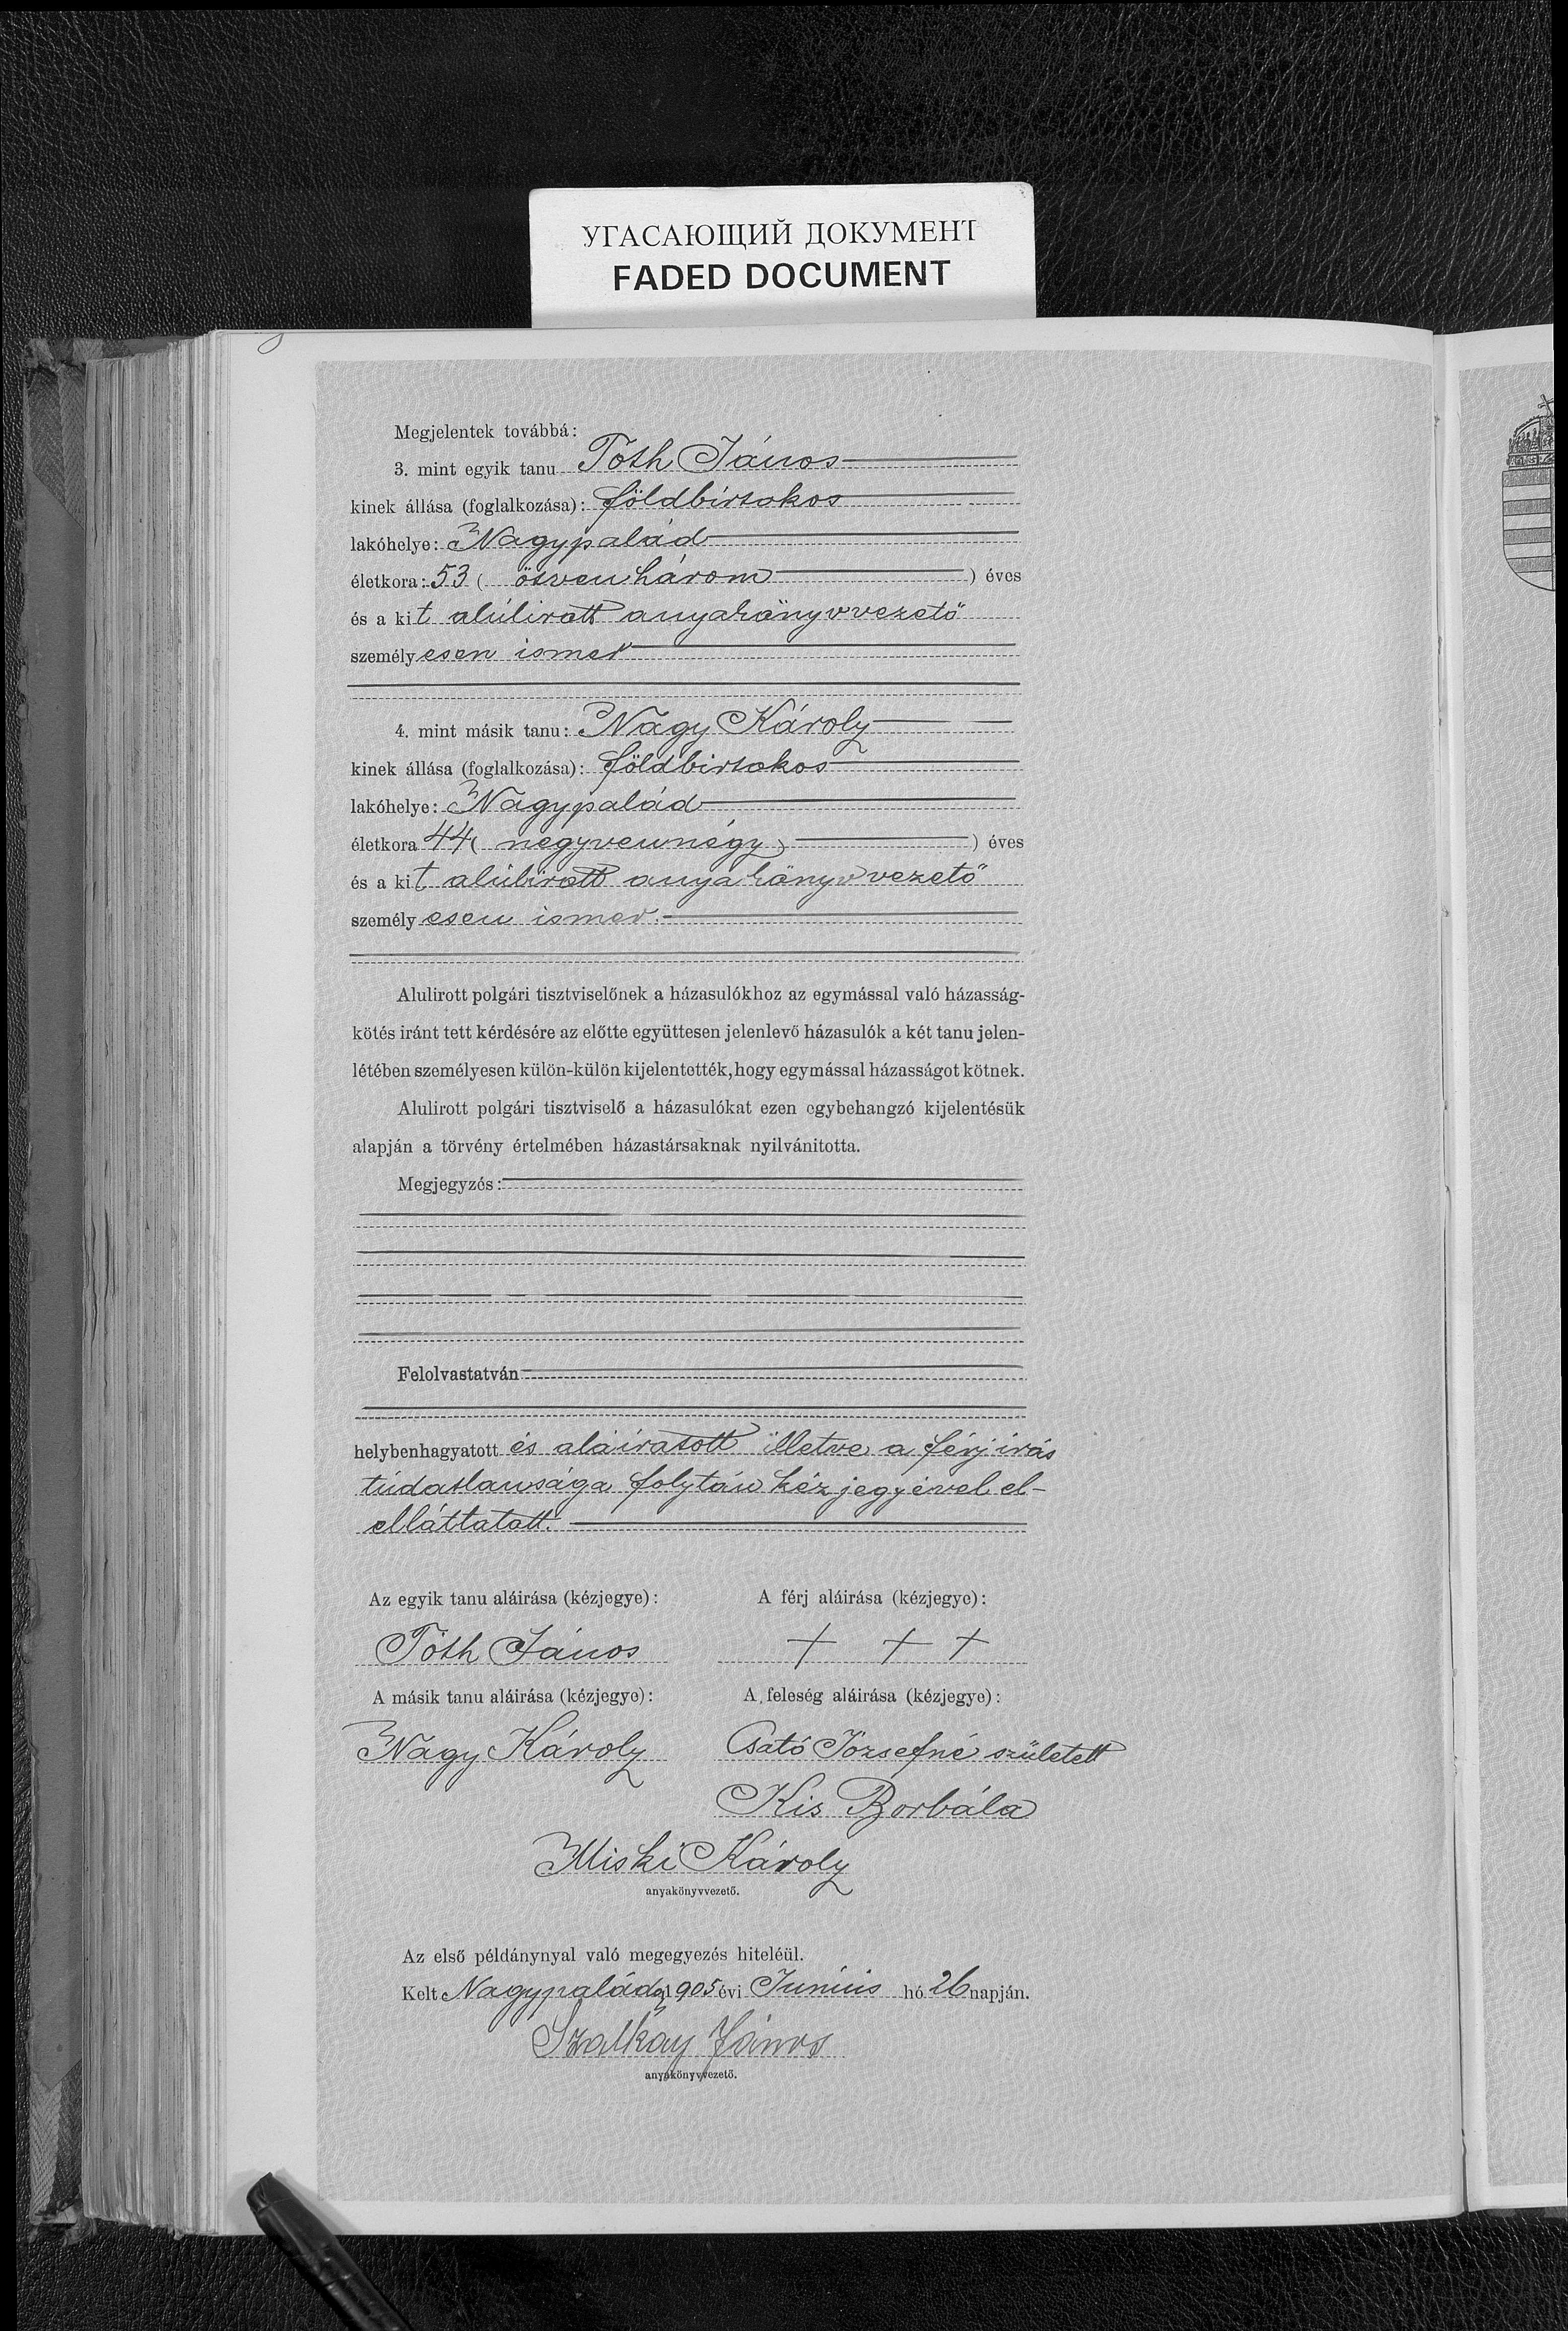 УГАСАЮЩИЙ ДОКУМЕНТ
FADED DOCUMENT
Megjelentek továbbá:
3. mint egyik tanu Tóth János
kinek állása (foglalkozása): földbirtokos
lakóhelye: Nagypalád
életkora: 53 ( ötvenhárom ) éves
és a kit alúlirott anyakönyvvezető
személyesen ismer
4. mint másik tanu: Nagy Károly
kinek állása (foglalkozása): földbirtokos
lakóhelye: Nagypalád
életkora 44 ( negyvennégy ) éves
és a kit alúlirott anyakönyvvezető
személyesen ismer.
Alulirott polgári tisztviselőnek a házasulókhoz az egymással való házasság-
kötés iránt tett kérdésére az előtte együttesen jelenlevő házasulók a két tanu jelen-
létében személyesen külön-külön kijelentették, hogy egymással házasságot kötnek.
Alulirott polgári tisztviselő a házasulókat ezen egybehangzó kijelentésük
alapján a törvény értelmében házastársaknak nyilvánitotta.
Megjegyzés:
Felolvastatván
helybenhagyatott és aláiratott illetve a férj irás
túdatlansága folytán kézjegyével el-
elláttatott.
Az egyik tanu aláirása (kézjegye): A férj aláirása (kézjegye):
Tóth János + + +
A másik tanu aláirása (kézjegye): A feleség aláirása (kézjegye):
Nagy Károly Csató Józsefné született
Kis Borbála
Miski Károly
anyakönyvvezető.
Az első példánynyal való megegyezés hiteléül.
Kelt Nagypalád 1905 évi Június hó 26 napján.
Szalkay János
anyakönyvvezető.